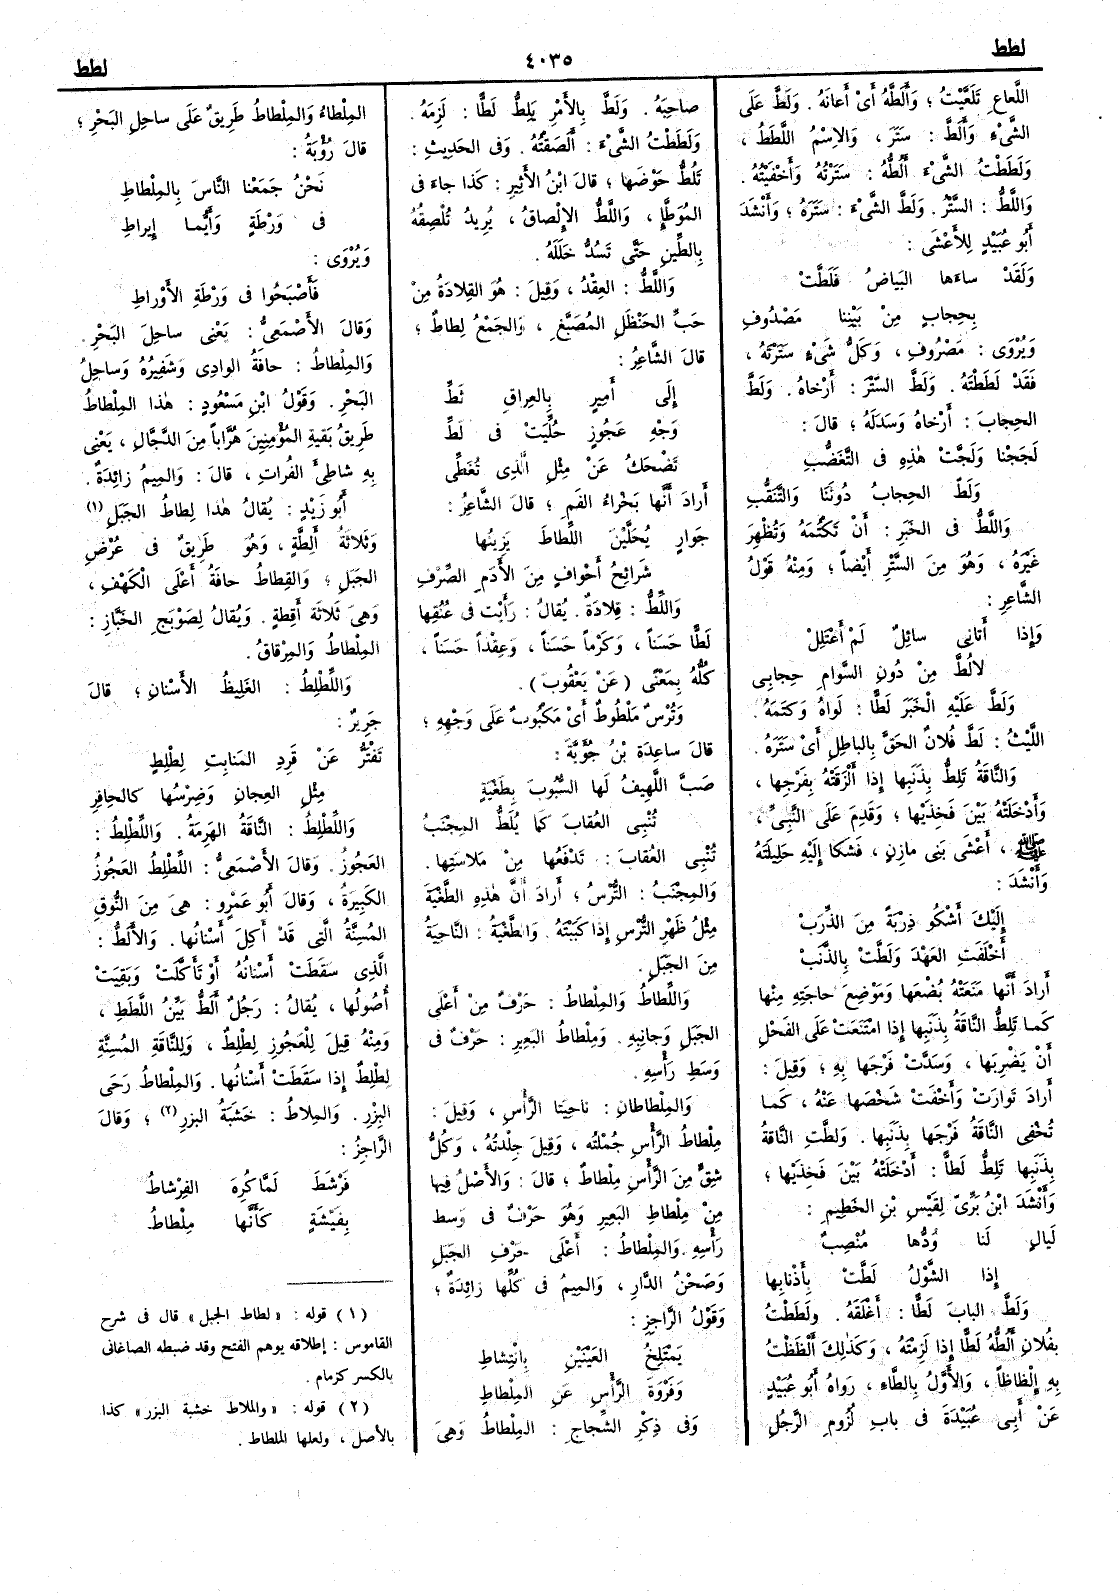 لطط
٤٠٣٥
لطط
اللَّعاعِ تَلَعَّيْتُ ؛ وَأَلَطَّهُ أَىْ أَعانَهُ . وَلَطَّ عَلَى
الشَّىْءِ وَأَلَطَّ : سَتَرَ ، وَالاِسْمُ اللَّطَطُ ،
وَلَطَطْتُ الشَّىْءَ أَلُطُّهُ : سَتَرْتُهُ وَأَخْفَيْتُهُ .
وَاللَّطُّ : السَّتْرُ . وَلَطَّ الشَّىْءَ : سَتَرَهُ ؛ وَأَنْشَدَ
أَبُو عُبَيْدٍ لِلأَعْشَى :
وَلَقَدْ ساءَها البَياضُ فَلَطَّتْ
بِحِجابٍ مِنْ بَيْنِنا مَصْدُوفِ
وَيُرْوَى : مَصْرُوفِ ، وَكُلُّ شَىْءٍ سَتَرْتَهُ ،
فَقَدْ لَطَطْتَهُ . وَلَطَّ السِّتْرَ : أَرْخاهُ . وَلَطَّ
الحِجابَ : أَرْخاهُ وَسَدَلَهُ ؛ قالَ :
لَجَجْنا وَلَجَّتْ هٰذِهِ فى التَّغَضُّبِ
وَلَطِّ الحِجابُ دُونَنا وَالتَّنَقُّبِ
وَاللَّطُّ فى الخَبَرِ : أَنْ تَكْتُمَهُ وَتُظْهِرَ
غَيْرَهُ ، وَهُوَ مِنَ السَّتْرِ أَيْضاً ؛ وَمِنْهُ قَوْلُ
الشَّاعِرِ :
وَإِذا أَتانِى سائِلٌ لَمْ أَعْتَلِلْ
لالُطَّ مِنْ دُونِ السَّوامِ حِجابِى
وَلَطَّ عَلَيْهِ الْخَبَرَ لَطًّا : لَواهُ وَكَتَمَهُ .
اللَّيْثُ : لَطَّ فُلانٌ الحَقَّ بِالباطِلِ أَىْ سَتَرَهُ .
وَالنَّاقَةُ تَلِطُّ بِذَنَبِها إِذا أَلْزَقَتْهُ بِفَرْجِها ،
وَأَدْخَلَتْهُ بَيْنَ فَخْذَيْها ؛ وَقَدِمَ عَلَى النَّبِىِّ ،
ﷺ ، أَعْشَى بَنِى مازِنٍ ، فَشَكا إِلَيْهِ حَلِيلَتَهُ
وَأَنْشَدَ :
إِلَيْكَ أَشْكُو ذِرْبَةً مِنَ الذِّرَبْ
أَخْلَفَتِ العَهْدَ وَلَطَّتْ بِالذَّنَبْ
أَرادَ أَنَّها مَنَعَتْهُ بُضْعَها وَمَوْضِعَ حاجَتِهِ مِنْها
كَما تَلِطُّ النَّاقَةُ بِذَنَبِها إِذا امْتَنَعَتْ عَلَى الفَحْلِ
أَنْ يَضْرِبَها ، وَسَدَّتْ فَرْجَها بِهِ ؛ وَقِيلَ :
أَرادَ تَوارَتْ وَأَخْفَتْ شَخْصَها عَنْهُ ، كَما
تُخْفِى النَّاقَةُ فَرْجَها بِذَنَبِها . وَلَطَّتِ النَّاقَةُ
بِذَنَبِها تَلِطُّ لَطًّا : أَدْخَلَتْهُ بَيْنَ فَخِذَيْها ؛
وَأَنْشَدَ ابْنُ بَرِّىّ لِقَيْسِ بْنِ الخَطِيمِ :
لَيالٍ لَنا وُدُّها مُنْصِبٌ
إِذا الشَّوْلُ لَطَّتْ بِأَذْنابِها
وَلَطَّ البابَ لَطًّا : أَغْلَقَهُ . وَلَطَطْتُ
بِفُلانٍ أَلُطُّهُ لَطًّا إِذا لَزِمْتَهُ ، وَكَذٰلِكَ أَلْظَظْتُ
بِهِ إِلْظاظاً ، وَالأَوَّلُ بِالطَّاءِ ، رَواهُ أَبُو عُبَيْدٍ
عَنْ أَبِى عُبَيْدَةَ فى بابِ لُزُومِ الرَّجُلِ
صاحِبَهُ . وَلَطَّ بِالأَمْرِ يَلِطُّ لَطًّا : لَزِمَهُ .
وَلَطَطْتُ الشَّىْءَ : أَلْصَقْتُهُ . وَفى الحَدِيثِ :
تَلُطُّ حَوْضَها ؛ قالَ ابْنُ الأَثِيرِ : كَذا جاءَ فى
المُوَطَّإِ ، وَاللَّطُّ الإِلْصاقُ ، يُرِيدُ تُلْصِقُهُ
بِالطِّينِ حَتَّى تَسُدَّ خَلَلَهُ .
وَاللَّطُّ : العِقْدُ ، وَقِيلَ : هُوَ القِلادَةُ مِنْ
حَبِّ الحَنْظَلِ المُصَبَّغِ ، وَالجَمْعُ لِطاطٌ ؛
قالَ الشَّاعِرُ :
إِلَى أَمِيرٍ بِالعِراقِ ثَطِّ
وَجْهِ عَجُوزٍ حُلِّيَتْ فى لَطِّ
تَضْحَكُ عَنْ مِثْلِ الَّذِى تُغَطِّى
أَرادَ أَنَّها بَخْراءُ الفَمِ ؛ قالَ الشَّاعِرُ :
جَوارٍ يُحَلَّيْنَ اللِّطاطَ يَزِينُها
شَرائِحُ أَحْوافٍ مِنَ الأَدَمِ الصِّرْفِ
وَاللَّطُّ : قِلادَةٌ . يُقالُ : رَأَيْت فى عُنُقِها
لَطًّا حَسَناً ، وَكَرْماً حَسَناً ، وَعِقْداً حَسَناً ،
كُلُّهُ بِمَعْنًى ( عَنْ يَعْقُوبَ ) .
وَتُرْسٌ مَلْطُوطٌ أَىْ مَكْبُوبٌ عَلَى وَجْهِهِ ؛
قالَ ساعِدَةَ بْنُ جُؤَيَّةَ :
صَبَّ اللَّهِيفُ لَها السُّبُوبَ بِطَغْيَةٍ
تُنْبِى العُقابَ كَما يُلَطُّ المِجْنَبُ
تُنْبِى العُقابَ : تَدْفَعُها مِنْ مَلاسَتِها .
وَالمِجْنَبُ : التُّرْسُ ؛ أَرادَ أَنَّ هٰذِهِ الطَّغْيَةَ
مِثْلُ ظَهْرِ التُّرْسِ إِذا كَبَبْتَهُ . وَالطَّغْيَةُ : النَّاحِيَةُ
مِنَ الجَبَلِ .
وَاللِّطاطُ وَالمِلْطاطُ : حَرْفٌ مِنْ أَعْلَى
الجَبَلِ وَجانِبِهِ . وَمِلْطاطُ البَعِيرِ : حَرْفٌ فى
وَسَطِ رَأْسِهِ .
وَالمِلْطاطانِ : ناحِيَتا الرَّأْسِ ، وَقِيلَ :
مِلْطاطُ الرَّأْسِ جُمْلَتُه ، وَقِيلَ جِلْدَتُهُ ، وَكُلُّ
شِقٍّ مِنَ الرَّأْسِ مِلْطاطٌ ؛ قالَ : وَالأَصْلُ فِيها
مِنْ مِلْطاطِ البَعِيرِ وَهُوَ حَرْفٌ فى وَسطِ
رَأْسِهِ . وَالمِلْطاطُ : أَعْلَى حَرْفِ الجَبَلِ
وَصَحْنُ الدَّارِ ، وَالمِيمُ فى كُلِّها زائِدَةٌ ؛
وَقَوْلُ الرَّاجِزِ :
يَمْتَلِخُ العَيْنَيْنِ بِانْتِشاطِ
وَفَرْوَةَ الرَّأْسِ عَنِ المِلْطاطِ
وَفى ذِكْرِ الشِّجاجِ : المِلْطاطُ وَهِىَ
المِلْطاءُ وَالمِلْطاطُ طَرِيقٌ عَلَى ساحِلِ البَحْرِ ؛
قالَ رُؤْبَةُ :
نَحْنُ جَمَعْنا النَّاسَ بِالمِلْطاطِ
فى وَرْطَةٍ وَأَيُّما إِيراطِ
وَيُرْوَى :
فَأَصْبَحُوا فى وَرْطَةِ الأَوْراطِ
وَقالَ الأَصْمَعِىُّ : يَعْنِى ساحِلَ البَحْرِ .
وَالمِلْطاطُ : حافَةُ الوادِى وَشَفِيرُهُ وَساحِلُ
البَحْرِ . وَقَوْلُ ابْنِ مَسْعُودٍ : هٰذا المِلْطاطُ
طَرِيقُ بَقِيةِ المُؤْمِنِينَ هُرَّاباً مِنَ الدَّجَّالِ ، يَعْنِى
بِهِ شاطِئَ الفُراتِ ، قالَ : وَالمِيمُ زائِدَةٌ .
أَبُو زَيْدٍ : يُقالُ هٰذا لِطاطُ الجَبَلِ (١)
وَثَلاثَةُ أَلِطَّةٍ ، وَهُوَ طَرِيقٌ فى عُرْضِ
الجَبَلِ ؛ وَالقِطاطُ حافَةُ أَعْلَى الْكَهْفِ ،
وَهِىَ ثَلاثَة أَقِطةٍ . وَيُقالُ لِصَوْبَجِ الخَبَّازِ :
المِلْطاطُ وَالمِرْقاقُ .
وَاللِّطْلِطُ : الغَلِيظُ الأَسْنانِ ؛ قالَ
جَرِيرٌ :
تَفْتَرُّ عَنْ قَرِدِ المَنابِتِ لِطْلِطٍ
مِثْلِ العِجانِ وَضِرْسُها كَالحافِرِ
وَاللِّطْلِطُ : النَّاقَةُ الهَرِمَةُ . وَاللِّطْلِطُ :
العَجُوزُ . وَقالَ الأَصْمَعِىُّ : اللِّطْلِطُ العَجُوزُ
الكَبِيرَةُ ، وَقالَ أَبُو عَمْرٍو : هِىَ مِنَ النُّوقِ
المُسِنَّةُ الَّتِى قَدْ أُكِلَ أَسْنانُها . وَالأَلَطُّ :
الَّذِى سَقَطَتْ أَسْنانُهُ أَوْ تَأَكَّلَتْ وَبَقِيَتْ
أُصُولُها ، يُقالُ : رَجُلٌ أَلَطُّ بَيِّنُ اللَّطَطِ ،
وَمِنْهُ قِيلَ لِلْعَجُوزِ لِطْلِطٌ ، وَلِلنَّاقَةِ المُسِنَّةِ
لِطْلِطٌ إِذا سَقَطَتْ أَسْنانُها . وَالمِلْطاطُ رَحَى
البِزْرِ . وَالمِلاطُ : خَشَبَةُ البزرِ (٢) ؛ وَقالَ
الرَّاجِزُ :
فَرْشَطَ لَمَّا كُرِهَ الفِرْشاطُ
بِفَيْشَةٍ كَأَنَّها مِلْطاطُ
(١) قوله : « لطاط الجبل » قال فى شرح
القاموس : إطلاقه يوهم الفتح وقد ضبطه الصاغانى
بالكسر كزمام .
(٢) قوله : « والملاط خشبة البزر » كذا
بالأصل ، ولعلها الملطاط .